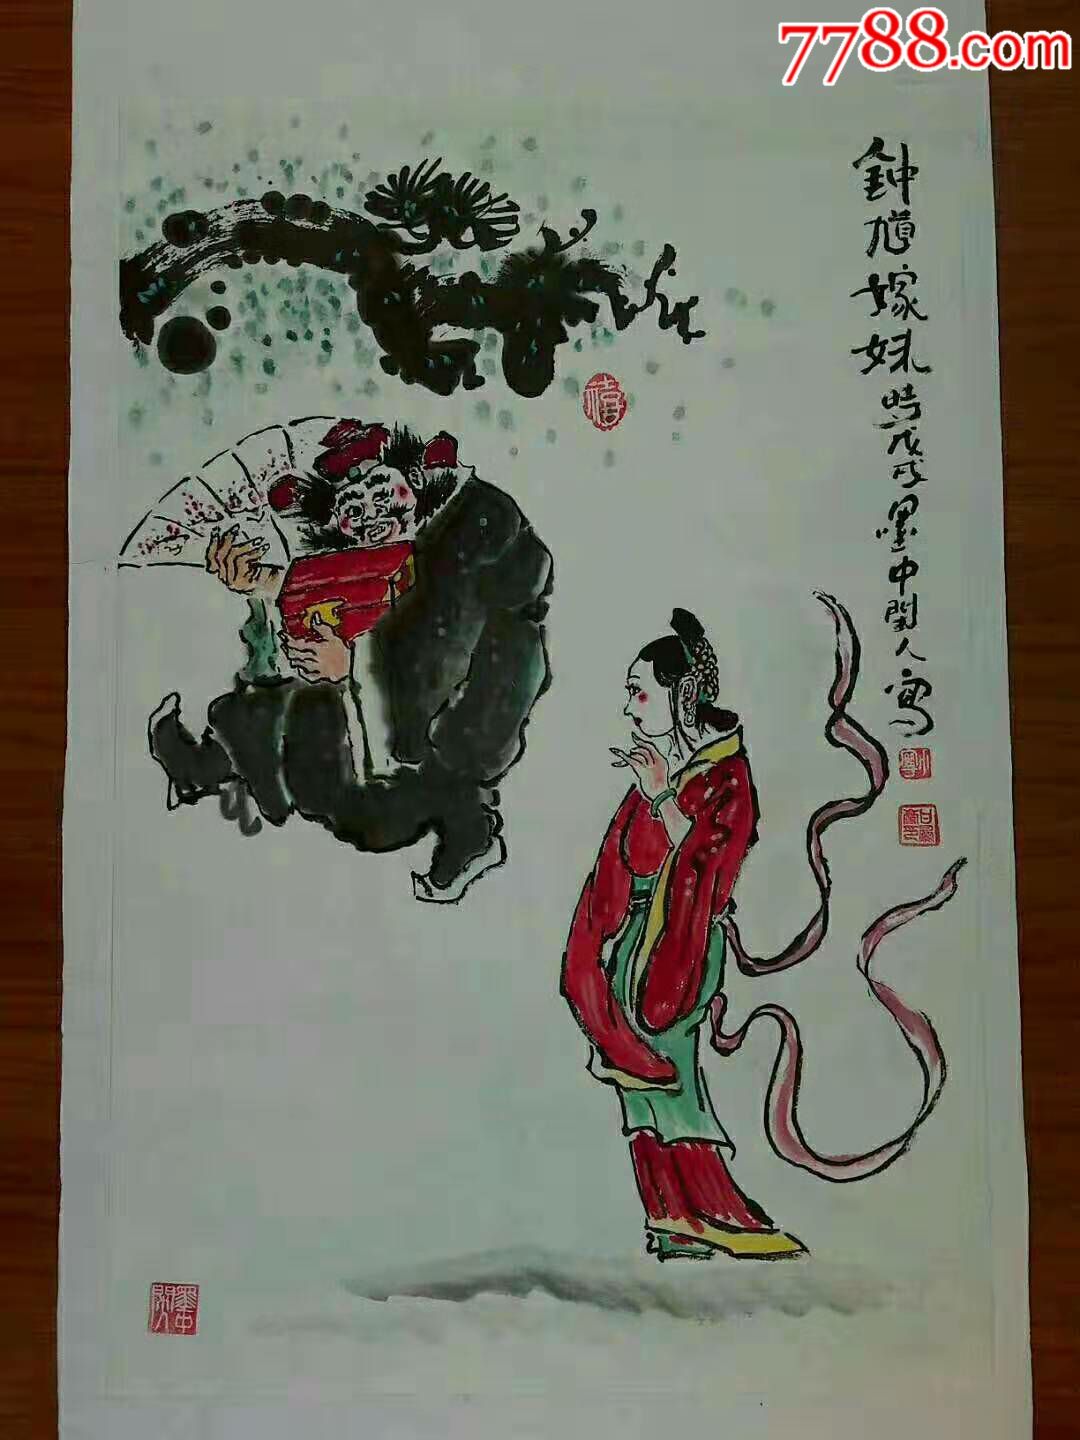 7788.com
鍾馗嫁妹時戊戌墨中閒人寫
禧
墨中閒人